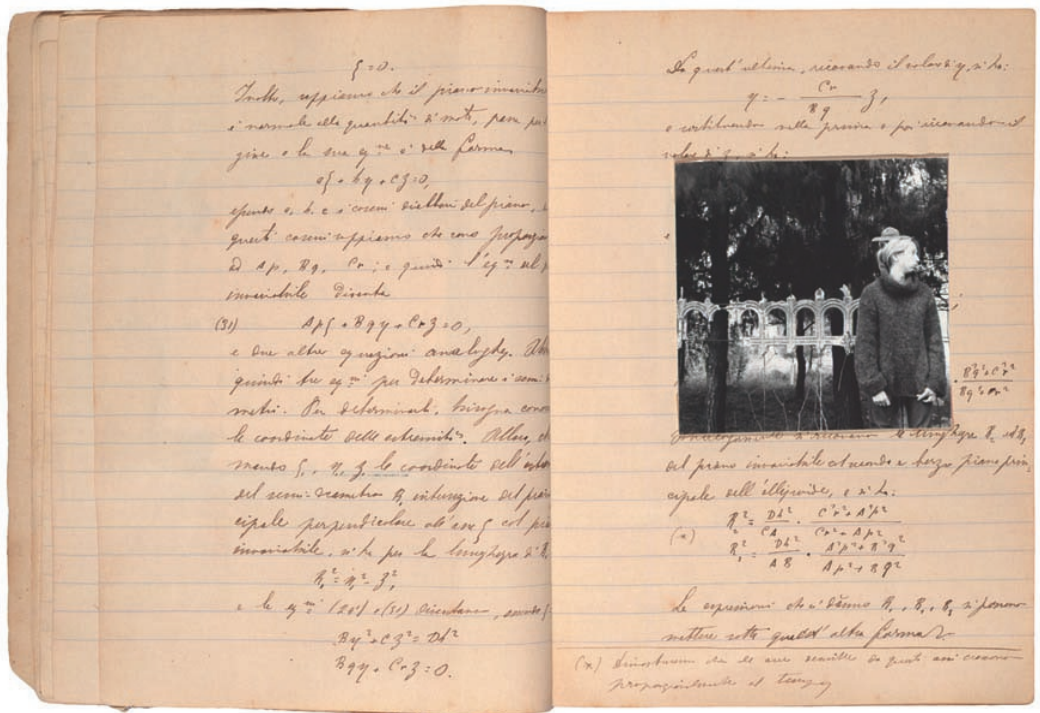 ξ = 0.
Inoltre, sappiamo che il piano invariabile
è normale alla quantità di moto, passa per
gine e la sua eq.ne è della forma
aξ + by + cz = 0,
essendo a, b, c i coseni direttori del piano,
questi coseni sappiamo che sono proporzio
ad Ap, Bq, Cr; e quindi l'eq.ne del
invariabile diventa
(31) Apξ + Bqy + Crz = 0,
e due altre equazioni analoghe.
quindi tre eq.ni per determinare i semi
metri. Per determinarli, bisogna cono
le coordinate delle estremità. Allora,
mando ξ, η, z le coordinate dell'estre
del semi-diametro R, intersezione del pia
cipale perpendicolare all'asse ξ col pia
invariabile, si ha per la lunghezza di R
e le eq.ni (20') e (31) diventano,
By² + Cz² = Dh²
Bqy + Crz = 0.
Da quest'ultima, ricavando il valore di y, si ha:
y = - Cr / Bq z,
e sostituendo nella prima e poi ricavando il
valore di z, si ha:
B²q² + C²r² / Bq² + Cr²
si ricavano le lunghezze R₂ ed R₃
del piano invariabile col secondo e terzo piano prin-
cipale dell'ellissoide, e si ha:
(x) R₂² = Dh² / CA · C²r² + A²p² / Cr² + Ap²
R₃² = Dh² / AB · A²p² + B²q² / Ap² + Bq²
Le espressioni che ci danno R₁, R₂, R₃ si possono
mettere sotto quest'altra forma
(x) Dimostreremo che le aree descritte da questi assi crescono
proporzionalmente al tempo